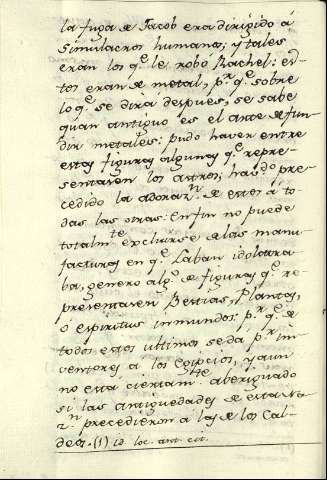 la fuga de Jacob era dirigido á
simulacros humanos, y tales
eran los qe. le robó Rachel: es-
tos eran de metal, pr. qe. sobre
lo qe. se dira despues, se sabe
quan antiguo es el arte de fun-
dir metales: pudo haver entre
estas figuras algunas qe. repre-
sentaren los astros, havdo. pre-
cedido la adoran. de estos á to-
das las otras: Enfin no puede
totalmte. excluirse de las manu-
facturas en qe. Laban idolatra-
ba, genero algo. de figuras qe. re-
presentaren Bestias, Plantas,
o espiritus inmundos: pr. qe. de
todos estos ultimos se da pr. in-
ventores a los Egipcios, y aun
no esta ciertamte. aberiguado
si las antiguedades de esta Na-
zn. precedieron a las de los Cal-
deos. (1) id. loc. ant. cit.